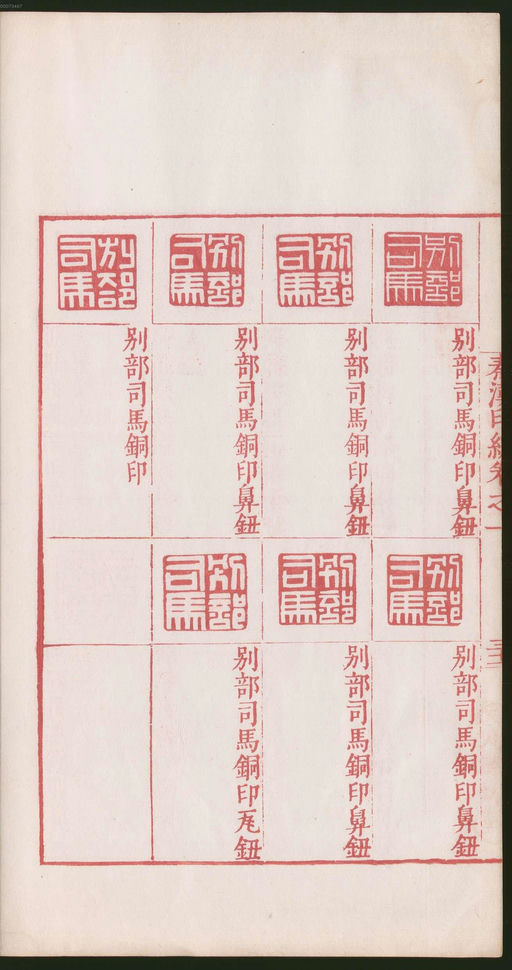 秦漢印統卷之一
別部司馬
別部司馬銅印鼻鈕
別部司馬
別部司馬銅印鼻鈕
別部司馬
別部司馬銅印鼻鈕
別部司馬
別部司馬銅印
別部司馬
別部司馬銅印鼻鈕
別部司馬
別部司馬銅印鼻鈕
別部司馬
別部司馬銅印瓦鈕
00073467